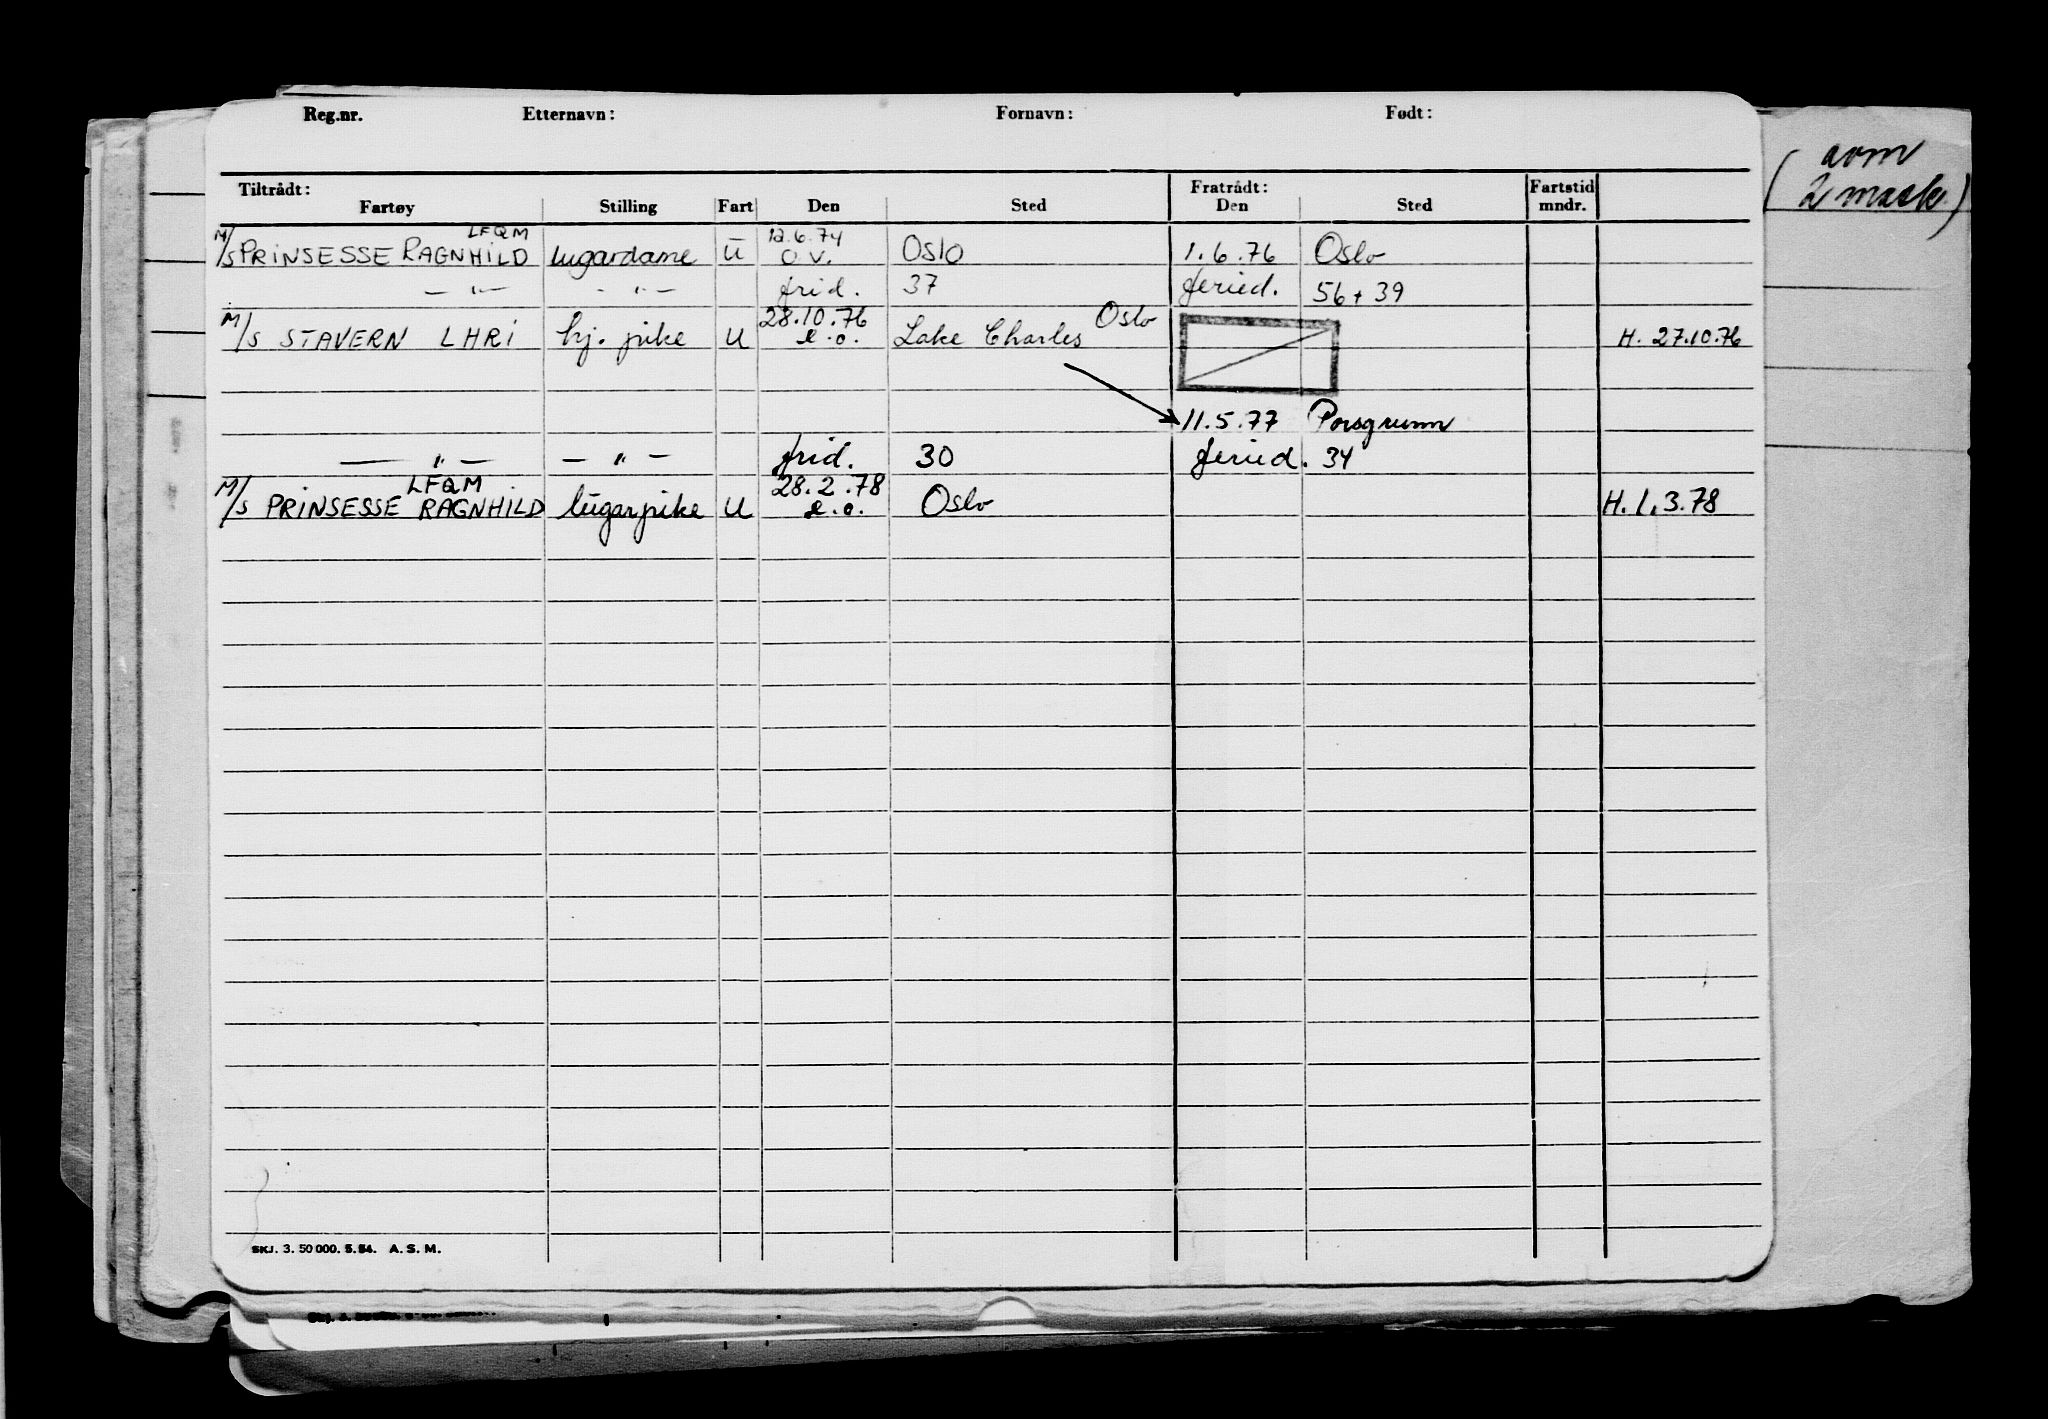 Reg.nr. Etternavn: Fornavn: Født:
Tiltrådt: Fratrådt: Fartstid
Fartøy Stilling Fart Den Sted Den Sted mndr.
LFQM 12.6.74
M/S PRINSESSE RAGNHILD lugardame U o.v. Oslo 1.6.76 Oslo
— " — - " - frid. 37 feried. 56 + 39
28.10.76 Oslo
M/S STAVERN LHRI hj. pike U e.o. Lake Charles H. 27.10.76
11.5.77 Porsgrunn
— " — — " — frid. 30 feried. 34
LFQM 28.2.78
M/S PRINSESSE RAGNHILD lugarpike U e.o. Oslo H. 1.3.78
SKJ. 3. 50 000. 5.54. A. S. M.
2 mask)